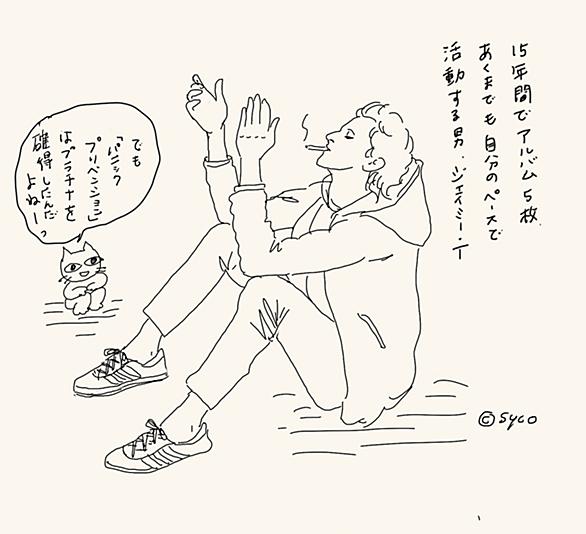 15年間でアルバム5枚.
あくまでも自分のペースで
活動する男.ジェイミー・T
でも
「パニック
プリベンション」
はプラチナを
確得したんだ
よねーっ
©syco